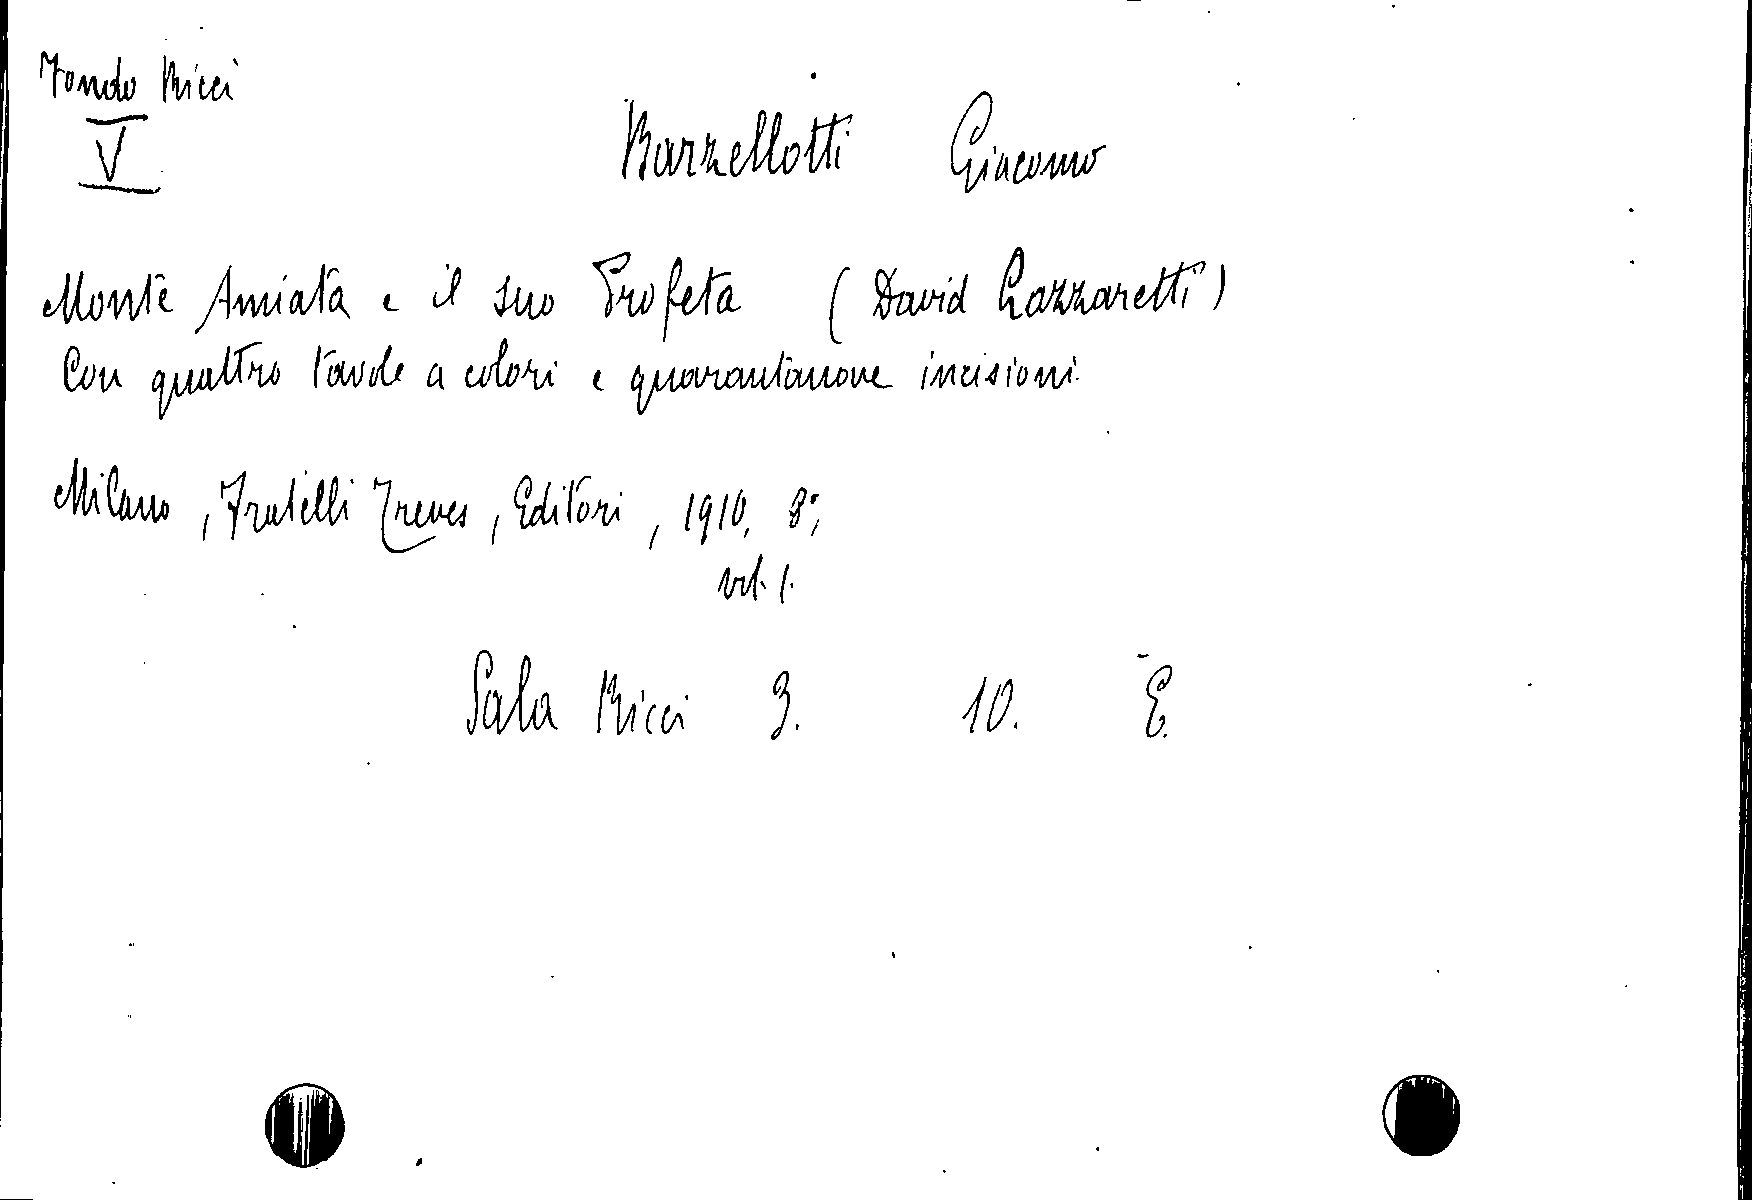 Fondo Ricci
V
Barzellotti Giacomo
Monte Amiata e il suo Profeta (David Lazzaretti)
Con quattro tavole a colori e quarantanove incisioni.
Milano, Fratelli Treves, Editori, 1910, 8°,
vol. 1.
Sala Ricci 3. 10. E.